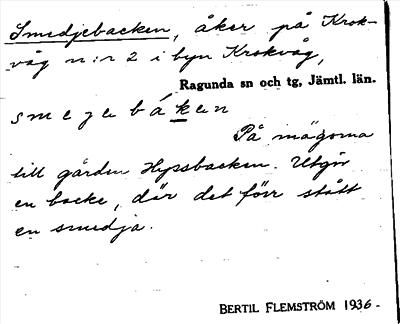 Smedjebacken, åker på Krok-
våg n:r 2 i byn Krokvåg,
Ragunda sn och tg, Jämtl. län.
På mägorna
till gården Hyssbacken. Utgör
en backe, där det förr stått
en smedja.
BERTIL FLEMSTRÖM 1936.